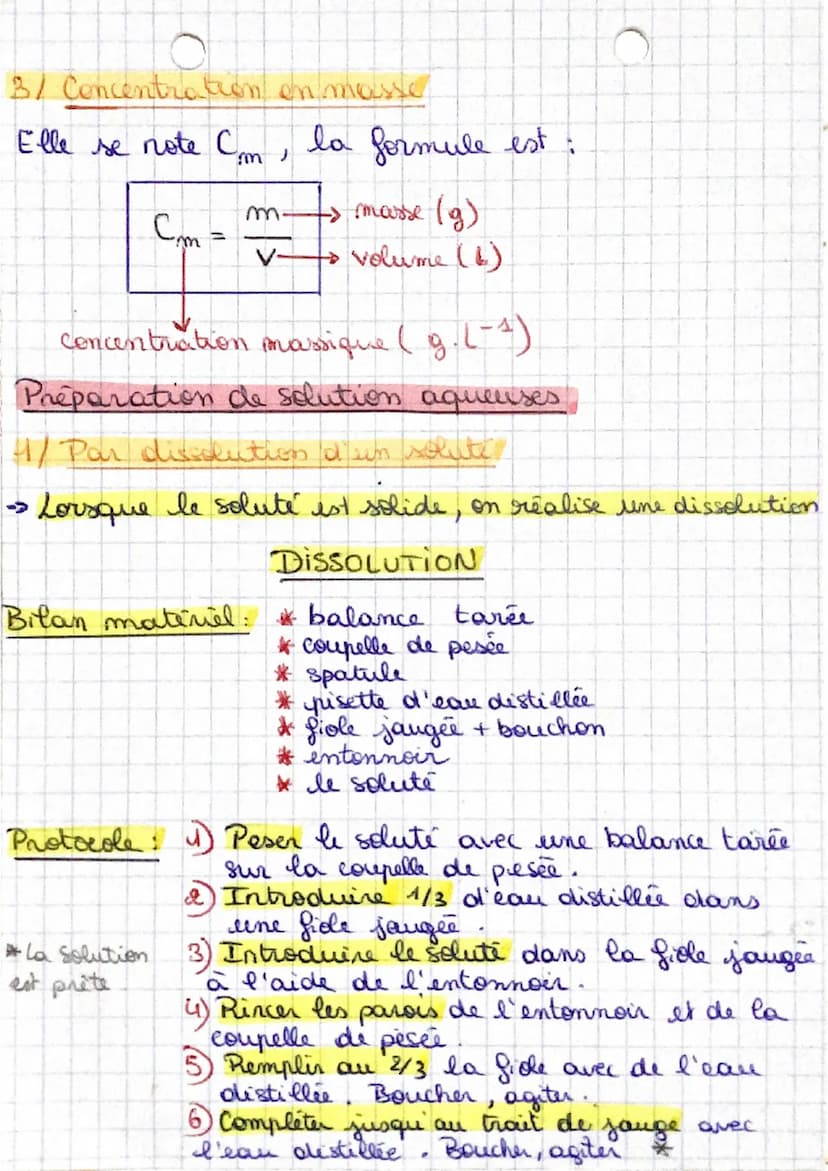 3/ Concentration en masse
Elle se note Cm, la formule est :
Cm = m/V
m → masse (g)
V → volume (L)
concentration massique (g.L⁻¹)
Préparation de solution aqueuses
1/ Par dissolution d'un soluté
→ Lorsque le soluté est solide, on réalise une dissolution
DISSOLUTION
Bilan matériel : * balance tarée
* coupelle de pesée
* spatule
* pisette d'eau distillée
* fiole jaugée + bouchon
* entonnoir
* le soluté
Protocole : 1) Peser le soluté avec une balance tarée
sur la coupelle de pesée.
2) Introduire 1/3 d'eau distillée dans
une fiole jaugée.
3) Introduire le soluté dans la fiole jaugée
à l'aide de l'entonnoir.
4) Rincer les parois de l'entonnoir et de la
coupelle de pesée.
5) Remplir au 2/3 la fiole avec de l'eau
distillée. Boucher, agiter.
6) Compléter jusqu'au trait de jauge avec
l'eau distillée. Boucher, agiter *
* La solution
est prête